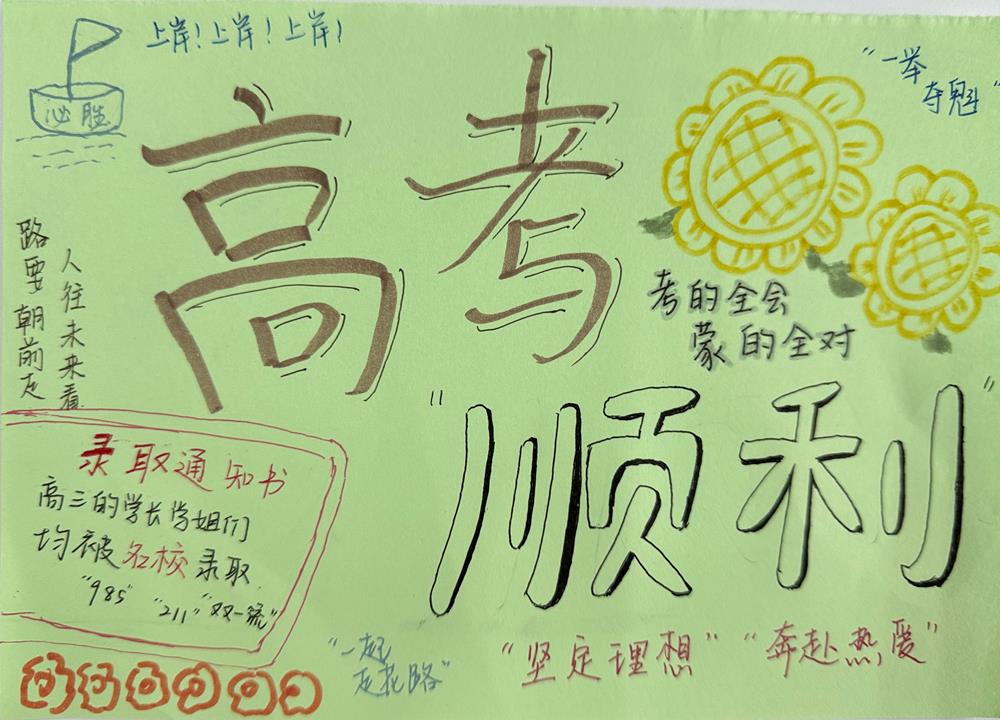 上岸！上岸！上岸！
必胜
高考
"一举
夺魁"
考的全会
蒙的全对
人往未来看
路要朝前走
"顺利"
录取通知书
高三的学长学姐们
均被名校录取
"985" "211" "双一流"
"一起
走花路"
"坚定理想" "奔赴热爱"